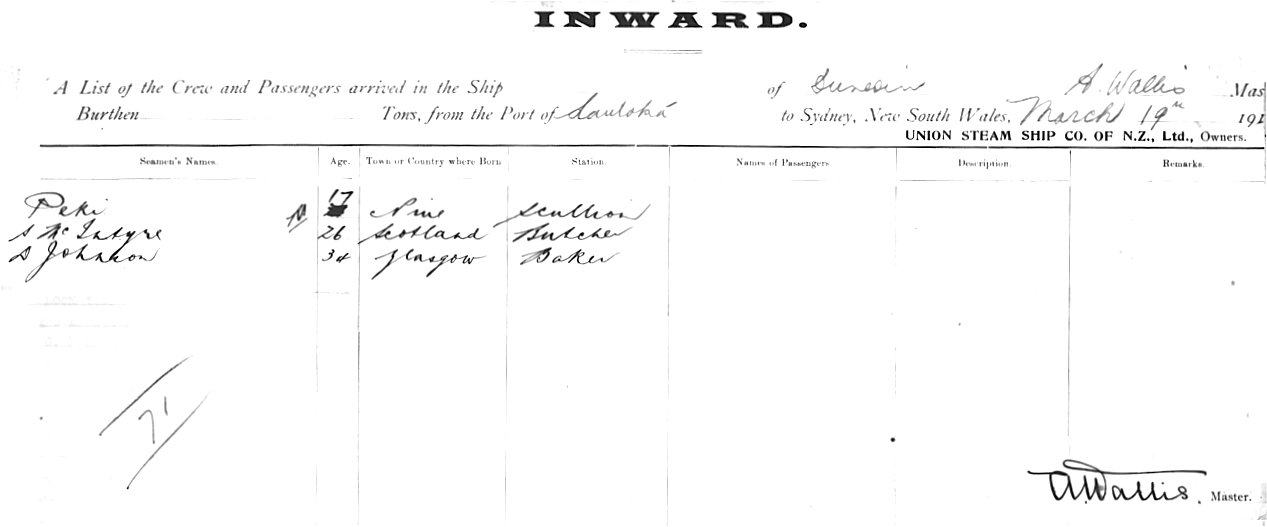 INWARD.
A List of the Crew and Passengers arrived in the Ship of Dunedin A. Wallis Mas
Burthen Tons, from the Port of Lautoka to Sydney, New South Wales, March 19th 191
UNION STEAM SHIP CO. OF N.Z., Ltd., Owners.
Seamen's Names. Age. Town or Country where Born Station. Names of Passengers. Description. Remarks.
Peki 17 Niue Scullion
S McIntyre 26 Scotland Butcher
D Johnson 34 Glasgow Baker
71
A. Wallis. Master.